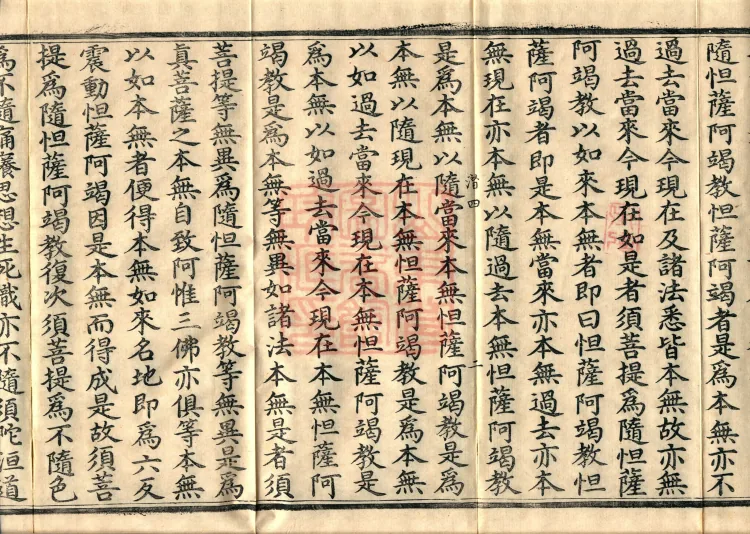 隨怛薩阿竭教怛薩阿竭者是爲本無亦不
過去當來今現在及諸法悉皆本無故亦無
過去當來今現在如是者須菩提爲隨怛薩
阿竭教以如來本無者即曰怛薩阿竭教怛
薩阿竭者即是本無當來亦本無過去亦本
無現在亦本無以隨過去本無怛薩阿竭教
潜四
二
是爲本無以隨當來本無怛薩阿竭教是爲
本無以隨現在本無怛薩阿竭教是爲本無
以如過去當來今現在本無怛薩阿竭教是
爲本無以如過去當來今現在本無怛薩阿
竭教是爲本無等無異如諸法本無是者須
菩提等無異爲隨怛薩阿竭教等無異是爲
真菩薩之本無自致阿惟三佛亦俱等本無
以如本無者便得本無如來名地即爲六反
震動怛薩阿竭因是本無而得成是故須菩
提爲隨怛薩阿竭教復次須菩提爲不隨色
爲不隨痛癢思想生死識亦不隨須陀洹道